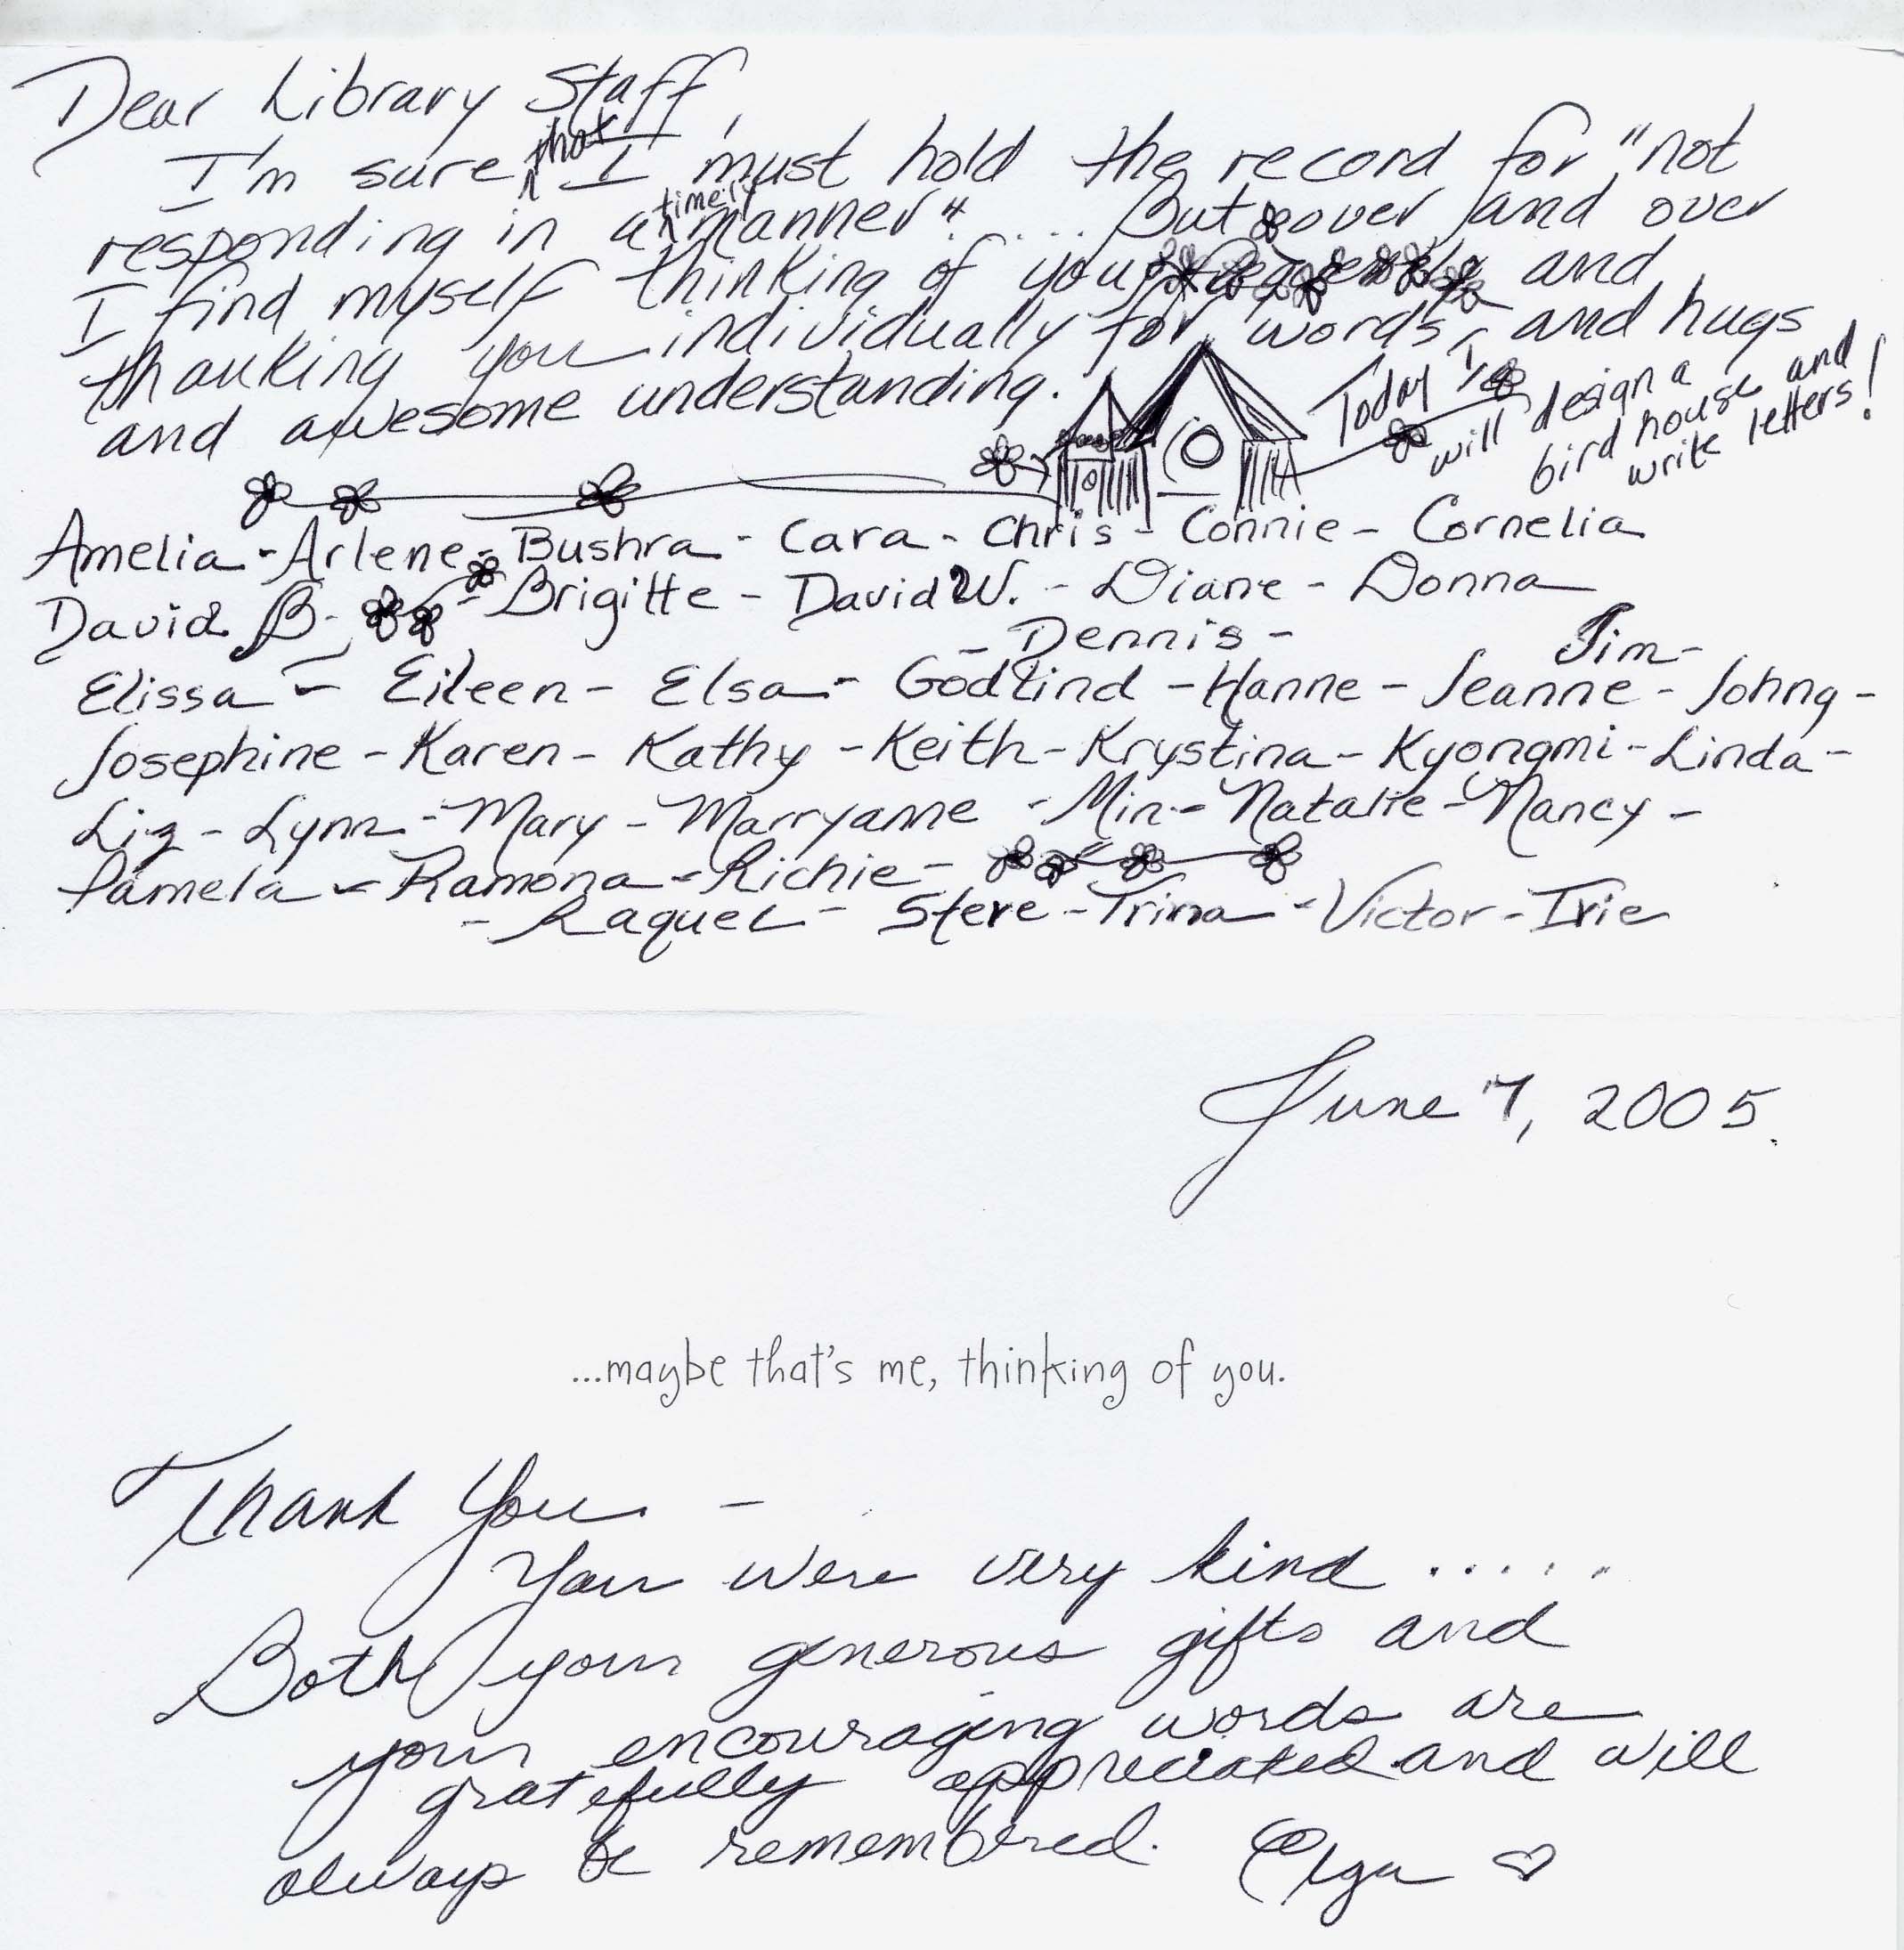 Dear Library Staff,
I'm sure that I must hold the record for "not
responding in a timely manner" ..... But over and over
I find myself thinking of you and
thanking you individually for words, and hugs
and awesome understanding.
Today I
will design a
bird house and
write letters!
Amelia - Arlene - Bushra - Cara - Chris - Connie - Cornelia
David B. - Brigitte - David W. - Diane - Donna
- Dennis - Jim -
Elissa - Eileen - Elsa - Godlind - Hanne - Jeanne - Johng -
Josephine - Karen - Kathy - Keith - Krystina - Kyongmi - Linda -
Liz - Lynn - Mary - Marryanne - Min - Natalie - Nancy -
Pamela - Ramona - Richie -
- Raquel - Steve - Trina - Victor - Irie
June 7, 2005.
...maybe that's me, thinking of you.
Thank You -
You were very kind .....
Both your generous gifts and
your encouraging words are
gratefully appreciated and will
always be remembered. Olga ♡